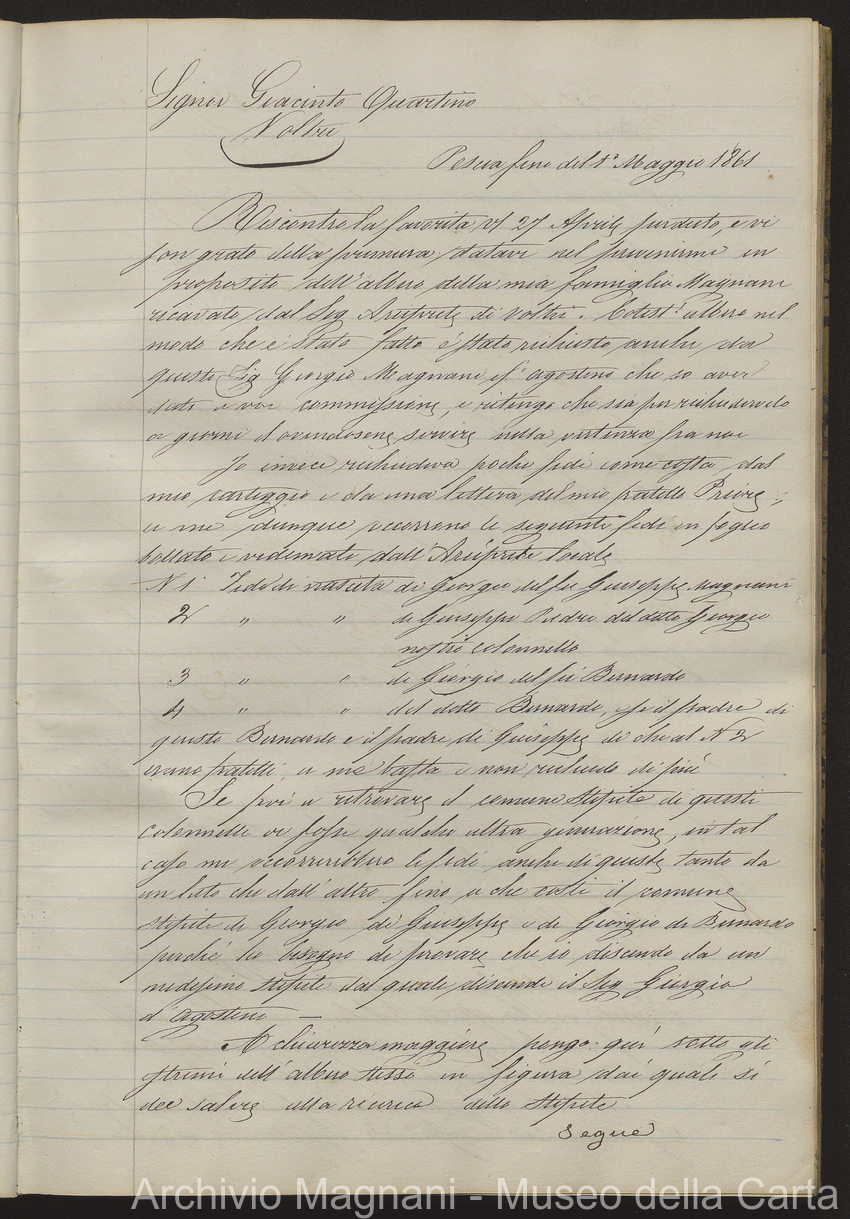 Signor Giacinto Quartino
Voltri
Pescia fine del 1° Maggio 1861
Riscontro la favorita vs 27 Aprile perduto, e vi
son grato della premura datavi nel prevenirmi in
proposito dell'albero della mia famiglia Magnani
ricavato dal Sig Arciprete di Voltri. Cotest° albero nel
modo che è stato fatto è stato richiesto anche da
questo Sig Giorgio Magnani d'Agostino che so aver
dato a voi commissione, e ritengo che sia per richiedervelo
a giorni dovendosene servire nella vertenza fra noi
Io invece richiedeva poche fedi come costa dal
mio carteggio e da una lettera del mio fratello Priore;
a me dunque occorrono le seguenti fedi in foglio
bollato e vidimate dall'Arciprete locale
N 1 Fede di nascita di Giorgio del fu Giuseppe Magnani
2 " " di Giuseppe Padre del detto Giorgio
nostro colonnello
3 " " di Giorgio del fu Bernardo
4 " " del detto Bernardo, e se il padre di
questo Bernardo e il padre di Giuseppe di che al N 2
erano fratelli, a me basta e non richiedo di più
Se poi a ritrovare il comune stipite di questi
colonnelli vi fosse qualche altra generazione, in tal
caso mi occorrerebbero le fedi anche di queste tanto da
un lato che dall'altro fino a che costi il comune
stipite di Giorgio di Giuseppe e di Giorgio di Bernardo
perché ho bisogno di provare che io discendo da un
medesimo stipite dal quale discende il Sig Giorgio
d'Agostino —
A chiarezza maggiore pongo qui sotto gli
estremi dell'albero stesso in figura dai quali si
dee salire alla ricerca dello stipite
Segue
Archivio Magnani - Museo della Carta